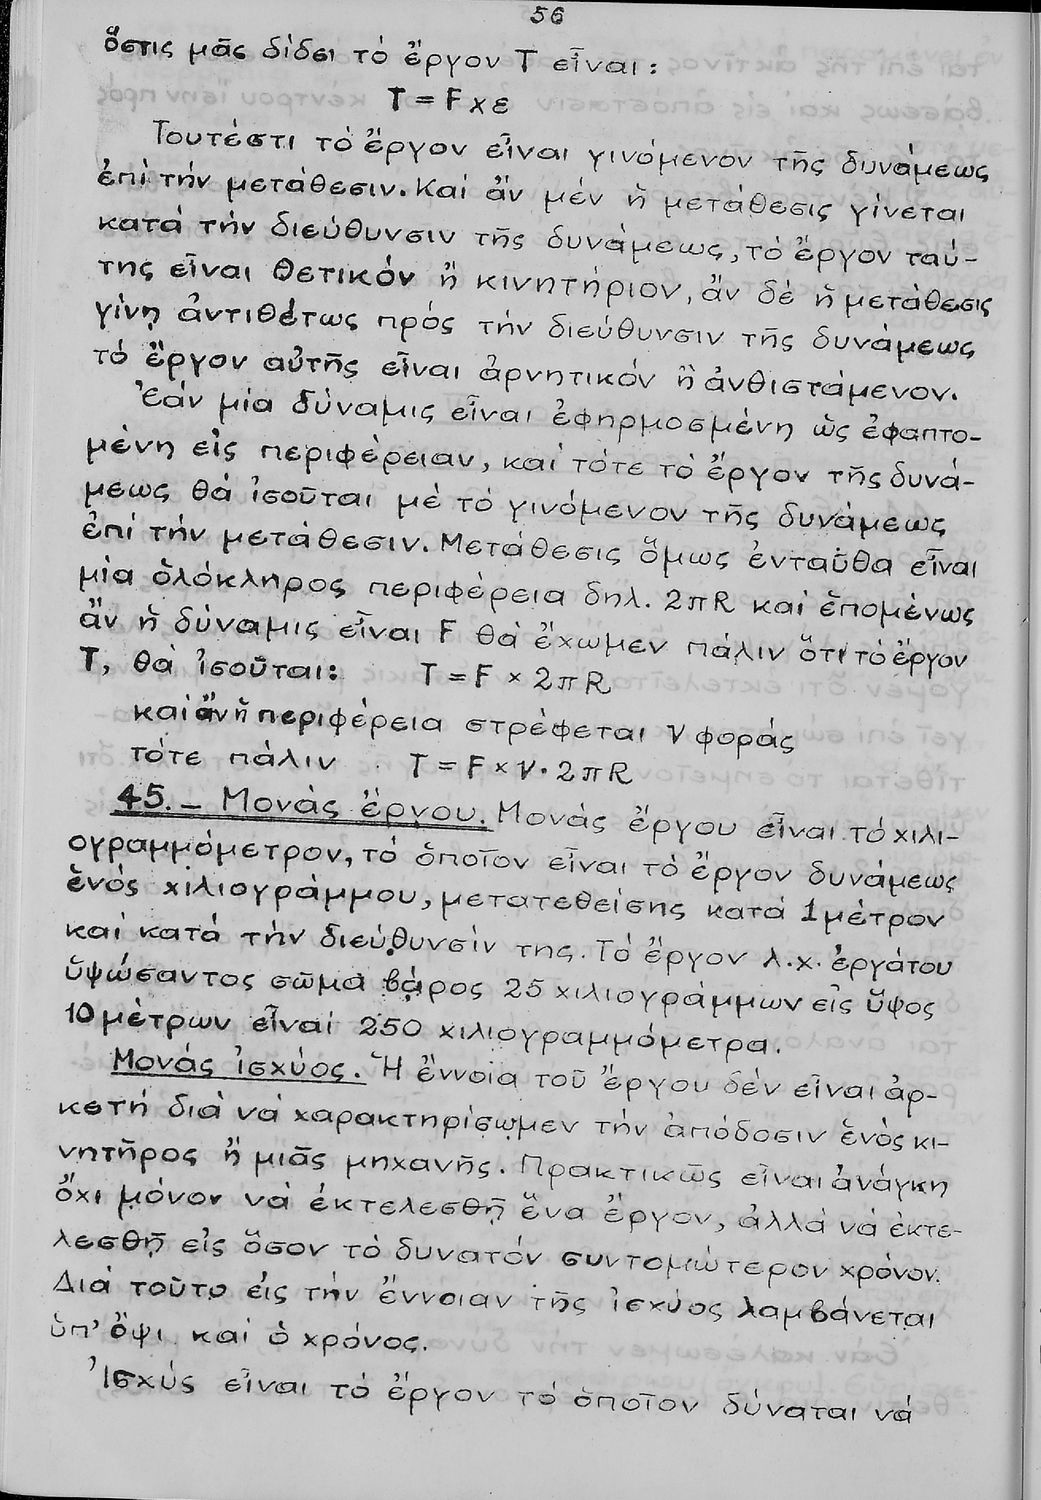 56
ὅστις μᾶς δίδει τό ἔργον Τ εἶναι:
Τ = F x ε
Τουτέστι τό ἔργον εἶναι γινόμενον τῆς δυνάμεως
ἐπί τήν μετάθεσιν. Καί ἄν μέν ἡ μετάθεσις γίνεται
κατά τήν διεύθυνσιν τῆς δυνάμεως, τό ἔργον ταύ-
της εἶναι θετικόν ἤ κινητήριον, ἄν δέ ἡ μετάθεσις
γίνῃ ἀντιθέτως πρός τήν διεύθυνσιν τῆς δυνάμεως
τό ἔργον αὐτῆς εἶναι ἀρνητικόν ἤ ἀνθιστάμενον.
Ἐάν μία δύναμις εἶναι ἐφηρμοσμένη ὡς ἐφαπτο-
μένη εἰς περιφέρειαν, καί τότε τό ἔργον τῆς δυνά-
μεως θά ἰσοῦται μέ τό γινόμενον τῆς δυνάμεως
ἐπί τήν μετάθεσιν. Μετάθεσις ὅμως ἐνταῦθα εἶναι
μία ὁλόκληρος περιφέρεια δηλ. 2πR καί ἑπομένως
ἄν ἡ δύναμις εἶναι F θά ἔχωμεν πάλιν ὅτι τό ἔργον
Τ, θά ἰσοῦται: Τ = F × 2πR
καί ἄν ἡ περιφέρεια στρέφεται ν φοράς
τότε πάλιν Τ = F × ν · 2πR
45.– Μονάς ἔργου. Μονάς ἔργου εἶναι τό χιλι-
ογραμμόμετρον, τό ὁποῖον εἶναι τό ἔργον δυνάμεως
ἑνός χιλιογράμμου, μετατεθείσης κατά 1 μέτρον
καί κατά τήν διεύθυνσίν της. Τό ἔργον λ.χ. ἐργάτου
ὑψώσαντος σῶμα βάρος 25 χιλιογράμμων εἰς ὕψος
10 μέτρων εἶναι 250 χιλιογραμμόμετρα.
Μονάς ἰσχύος. Ἡ ἔννοια τοῦ ἔργου δέν εἶναι ἀρ-
κετή διά νά χαρακτηρίσωμεν τήν ἀπόδοσιν ἑνός κι-
νητῆρος ἤ μιᾶς μηχανῆς. Πρακτικῶς εἶναι ἀνάγκη
ὄχι μόνον νά ἐκτελεσθῇ ἕνα ἔργον, ἀλλά νά ἐκτε-
λεσθῇ εἰς ὅσον τό δυνατόν συντομώτερον χρόνον.
Διά τοῦτο εἰς τήν ἔννοιαν τῆς ἰσχύος λαμβάνεται
ὑπ' ὄψι καί ὁ χρόνος.
Ἰσχύς εἶναι τό ἔργον τό ὁποῖον δύναται νά